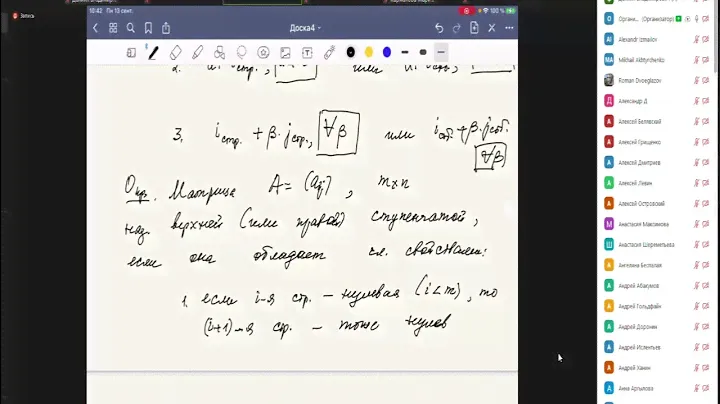 Запись
10:42 Пн 13 сент.
100 %
Доска4
2.
или
3. i стр. + β · j стр., ∀β или i стб. + β · j стб. ∀β
Опр. Матрица A = (aij), m×n
наз. верхней (или правой) ступенчатой,
если она обладает сл. свойствами:
1. если i-я стр. – нулевая (i < m), то
(i+1)-я стр. – тоже нулев
Органи... (Организатор)
Alexandr Izmailov
Mikhail Akhtyrchenko
Roman Dvoeglazov
Александр Д
Алексей Белявский
Алексей Грищенко
Алексей Дмитриев
Алексей Левин
Алексей Островский
Анастасия Максимова
Анастасия Шереметьева
Ангелина Беспалая
Андрей Абакумов
Андрей Гольдфайн
Андрей Доронин
Андрей Ислентьев
Андрей Ханин
Анна Артылова